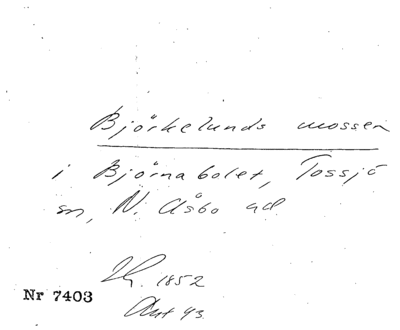 Björkelunds mossen
i Björnabolet, Tossjö
sn, N. Åsbo hd
Jh. 1852
Nr 7403
Ant 43.